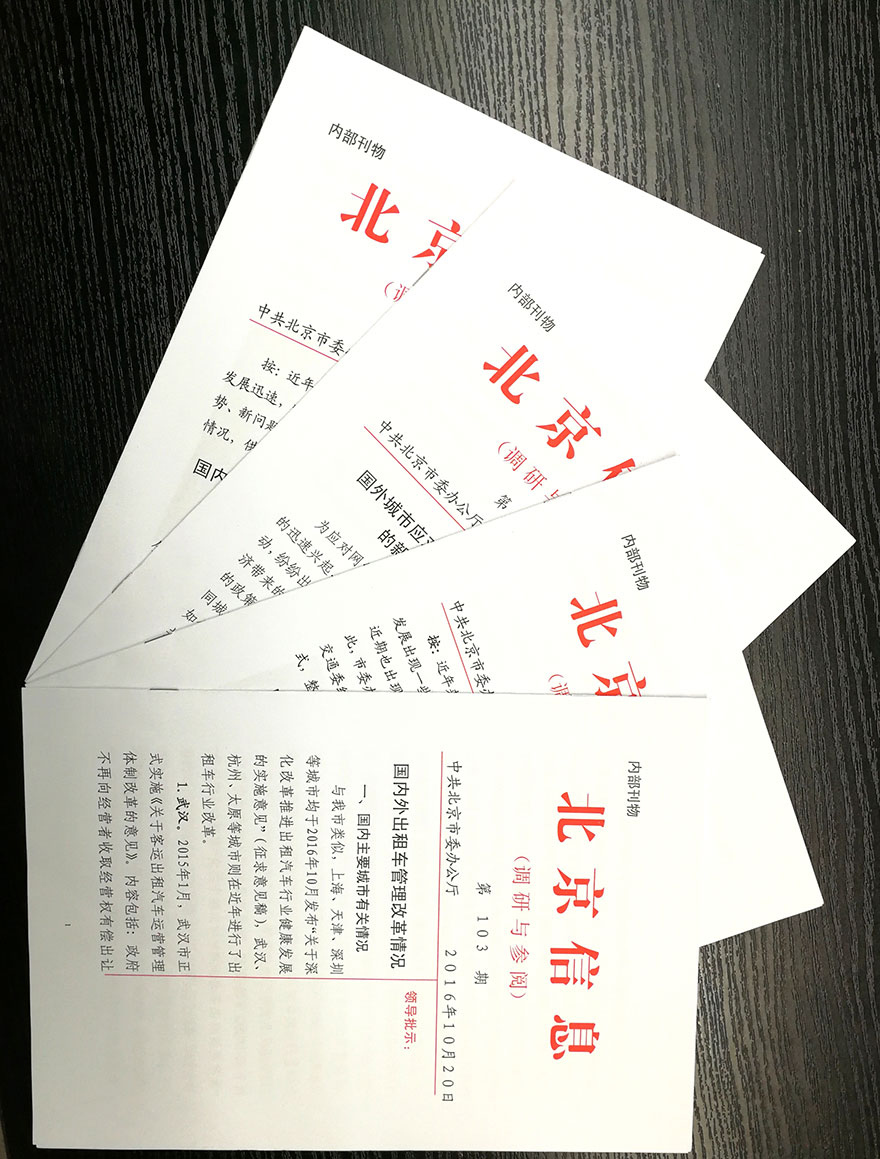 内部刊物
北京
（调
中共北京市委
按：近年
发展迅速，
势、新问题
情况，借
国内
内部刊物
北京信
（调研与
第
中共北京市委办公厅
国外城市应对
的新
为应对网
的迅速兴起，
动，纷纷出
济带来的
的政策
同城
如
内部刊物
北京
（调
中共北京市委办
按：近年
发展出现一些
近期也出现
此，市委办
交通委
式，整
内部刊物
北京信息
（调研与参阅）
第 103 期
中共北京市委办公厅 2016年10月20日
领导批示：
国内外出租车管理改革情况
一、国内主要城市有关情况
与我市类似，上海、天津、深圳
等城市均于2016年10月发布“关于深
化改革推进出租汽车行业健康发展
的实施意见”（征求意见稿），武汉、
杭州、太原等城市则在近年进行了出
租车行业改革。
1. 武汉。2015年1月，武汉市正
式实施《关于客运出租汽车运营管理
体制改革的意见》。内容包括：政府
不再向经营者收取经营权有偿出让
1